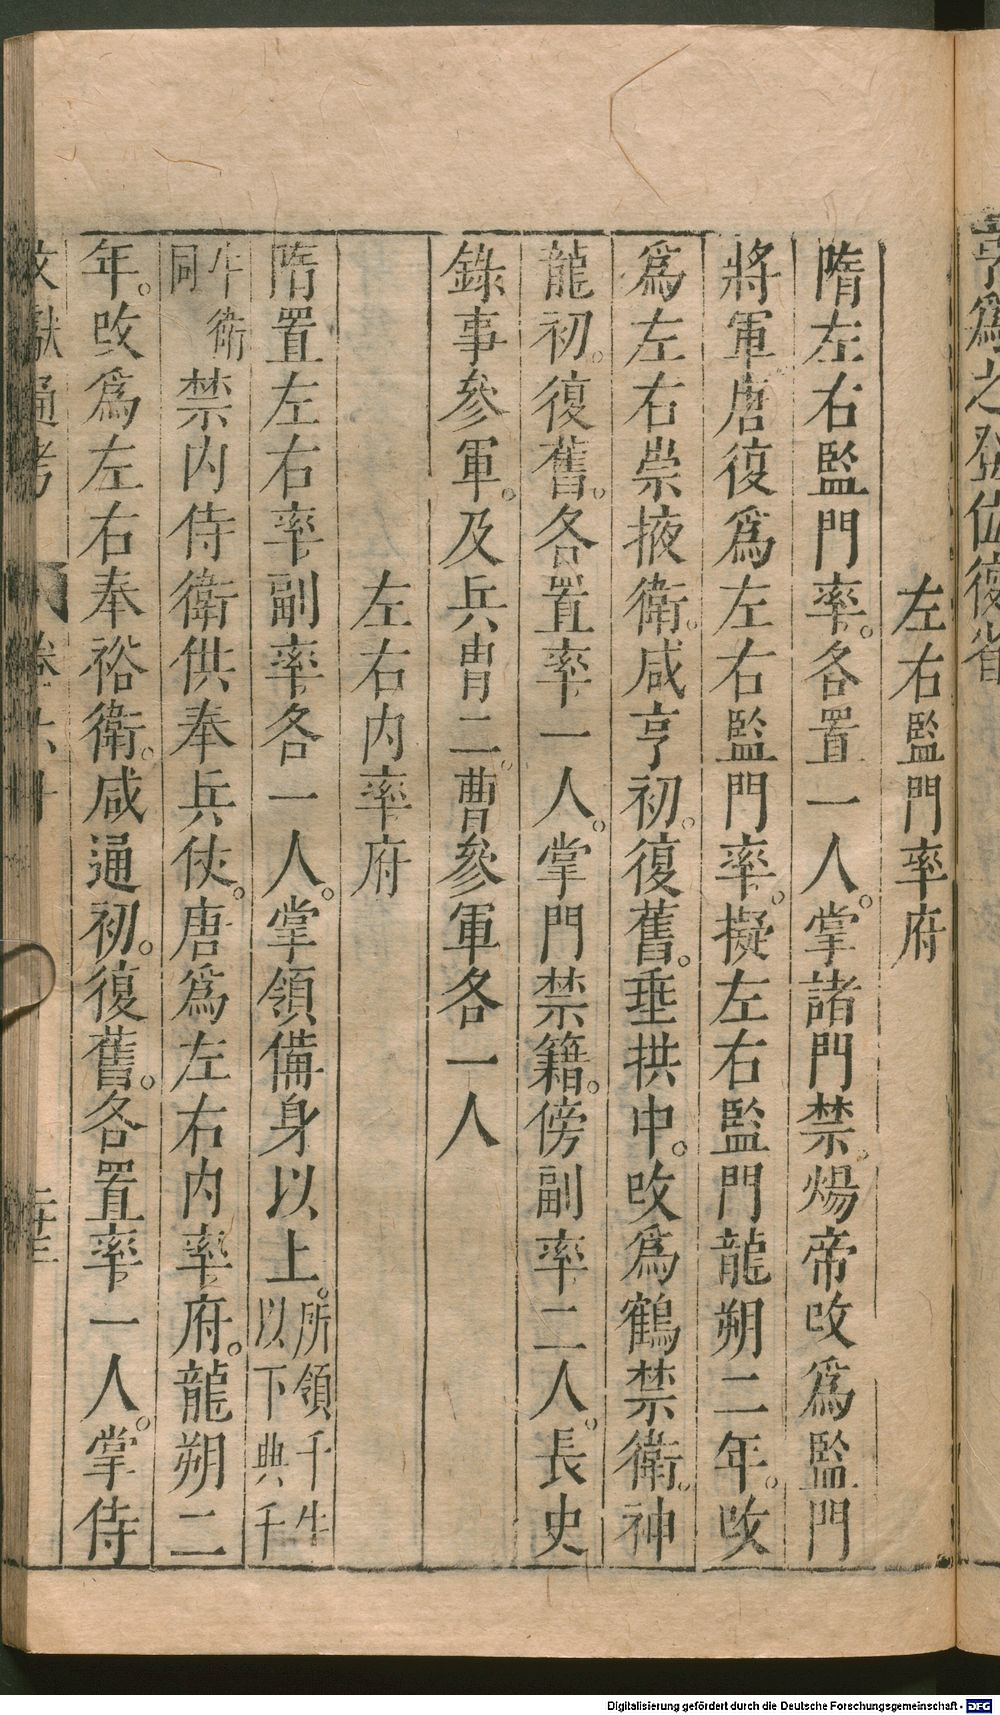 左右監門率府
隋左右監門率。各置一人。掌諸門禁。煬帝改爲監門
將軍唐復爲左右監門率。擬左右監門龍朔二年。改
爲左右崇掖衛。咸亨初。復舊。垂拱中。改爲鶴禁衛。神
龍初。復舊。各置率一人。掌門禁籍。傍副率二人。長史
錄事參軍。及兵胄二。曹參軍各一人
左右内率府
隋置左右率副率各一人。掌領備身以上。所領千牛以下與千
牛衛同禁内侍衛供奉兵仗。唐爲左右内率府。龍朔二
年。改爲左右奉裕衛。咸通初。復舊。各置率一人。掌侍
文獻通考 卷六十 二十三
爲之登位復省
Digitalisierung gefördert durch die Deutsche Forschungsgemeinschaft - DFG